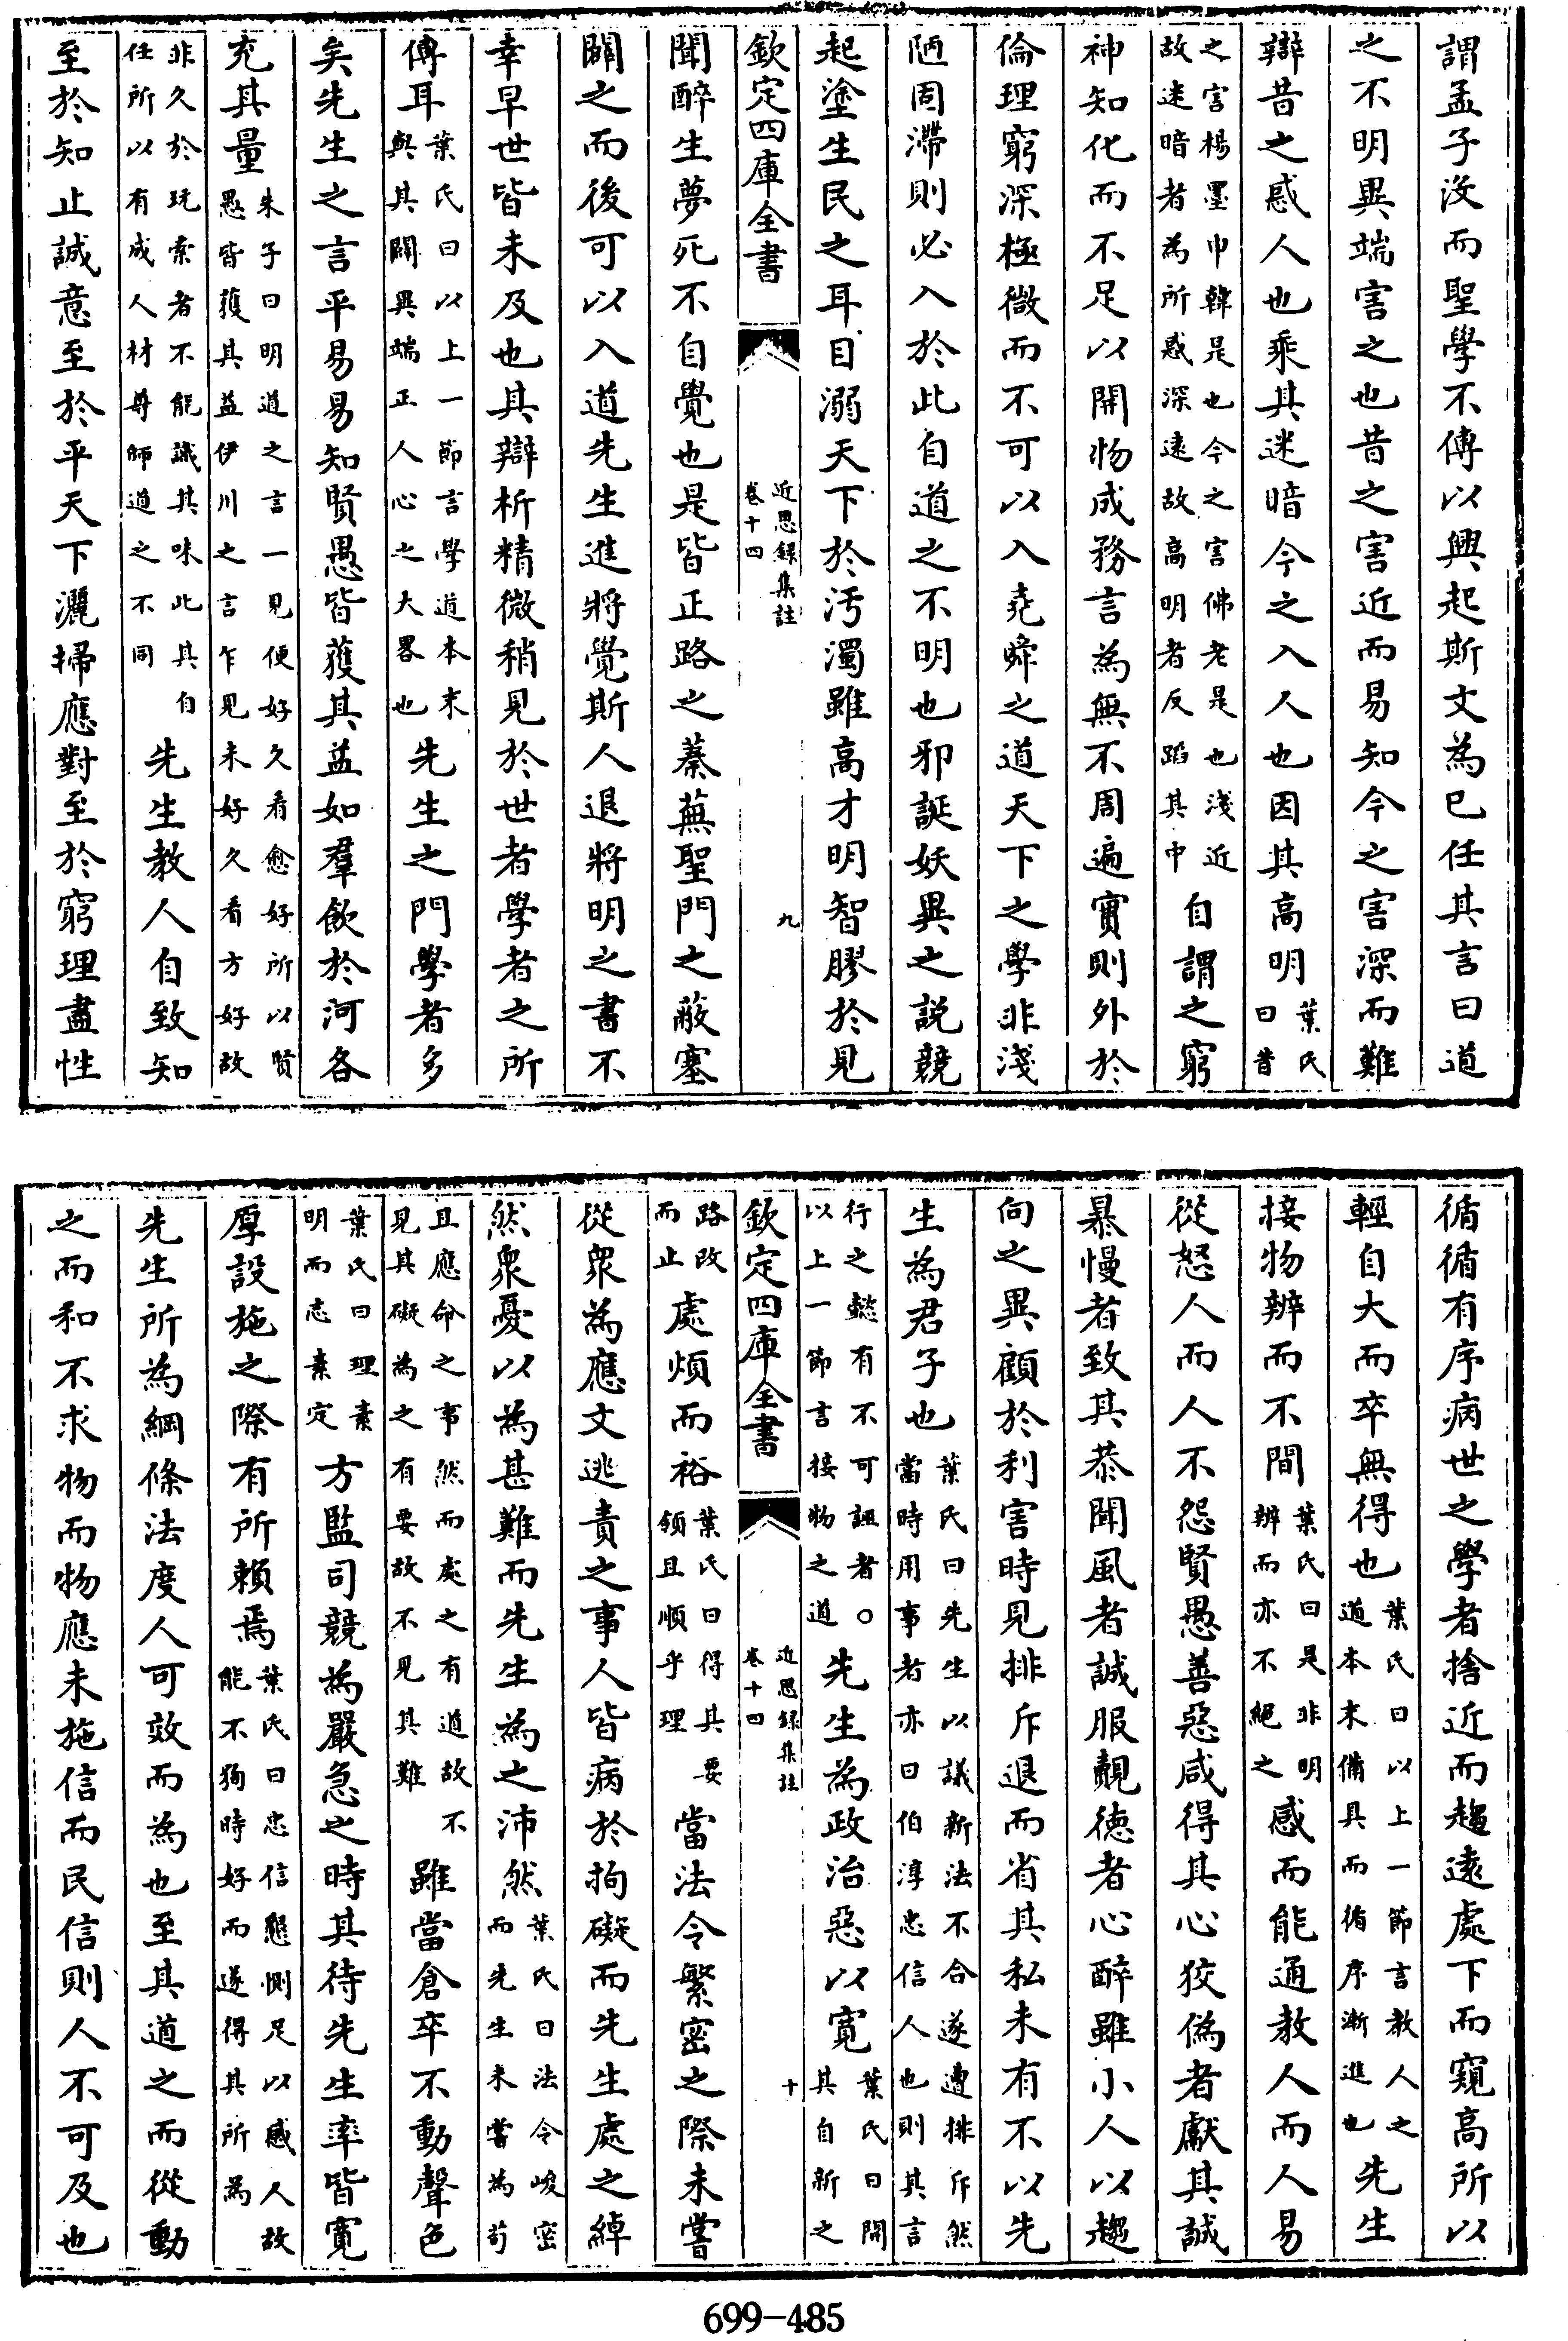 謂孟子沒而聖學不傳以興起斯文為已任其言曰道
之不明異端害之也昔之害近而易知今之害深而難
辯昔之惑人也乘其迷暗今之入人也因其高明葉氏曰昔
之害楊墨申韓是也今之害佛老是也淺近故迷暗者為所惑深遠故高明者反蹈其中自謂之窮
神知化而不足以開物成務言為無不周遍實則外於
倫理窮深極微而不可以入堯舜之道天下之學非淺
陋固滯則必入於此自道之不明也邪誕妖異之説競
起塗生民之耳目溺天下於汚濁雖高才明智膠於見
欽定四庫全書 近思録集註 卷十四 九
聞醉生夢死不自覺也是皆正路之蓁蕪聖門之蔽塞
闢之而後可以入道先生進將覺斯人退將明之書不
幸早世皆未及也其辯析精微稍見於世者學者之所
傳耳葉氏曰以上一節言學道本末與其闢異端正人心之大畧也先生之門學者多
矣先生之言平易易知賢愚皆獲其益如羣飲於河各
充其量朱子曰明道之言一見便好久看愈好所以賢愚皆獲其益伊川之言乍見未好久看方好故
非久於玩索者不能識其味此其自任所以有成人材尊師道之不同先生教人自致知
至於知止誠意至於平天下灑掃應對至於窮理盡性
循循有序病世之學者捨近而趨遠處下而窺高所以
輕自大而卒無得也葉氏曰以上一節言教人之道本末備具而循序漸進也先生
接物辨而不間葉氏曰是非明辨而亦不絕之感而能通教人而人易
從怒人而人不怨賢愚善惡咸得其心狡偽者獻其誠
暴慢者致其恭聞風者誠服覿德者心醉雖小人以趨
向之異顧於利害時見排斥退而省其私未有不以先
生為君子也葉氏曰先生以議新法不合遂遭排斥然當時用事者亦曰伯淳忠信人也則其言
行之懿有不可誣者○以上一節言接物之道先生為政治惡以寛葉氏曰開其自新之
欽定四庫全書 近思録集註 卷十四 十
路改而止處煩而裕葉氏曰得其要領且順乎理當法令繁密之際未嘗
從衆為應文逃責之事人皆病於拘礙而先生處之綽
然衆憂以為甚難而先生為之沛然葉氏曰法令峻密而先生未嘗為苟
且應命之事然而處之有道故不見其礙為之有要故不見其難雖當倉卒不動聲色
葉氏曰理素明而志素定方監司競為嚴急之時其待先生率皆寛
厚設施之際有所賴焉葉氏曰忠信懇惻足以感人故能不狥時好而遂得其所為
先生所為綱條法度人可效而為也至其道之而從動
之而和不求物而物應未施信而民信則人不可及也
699-485